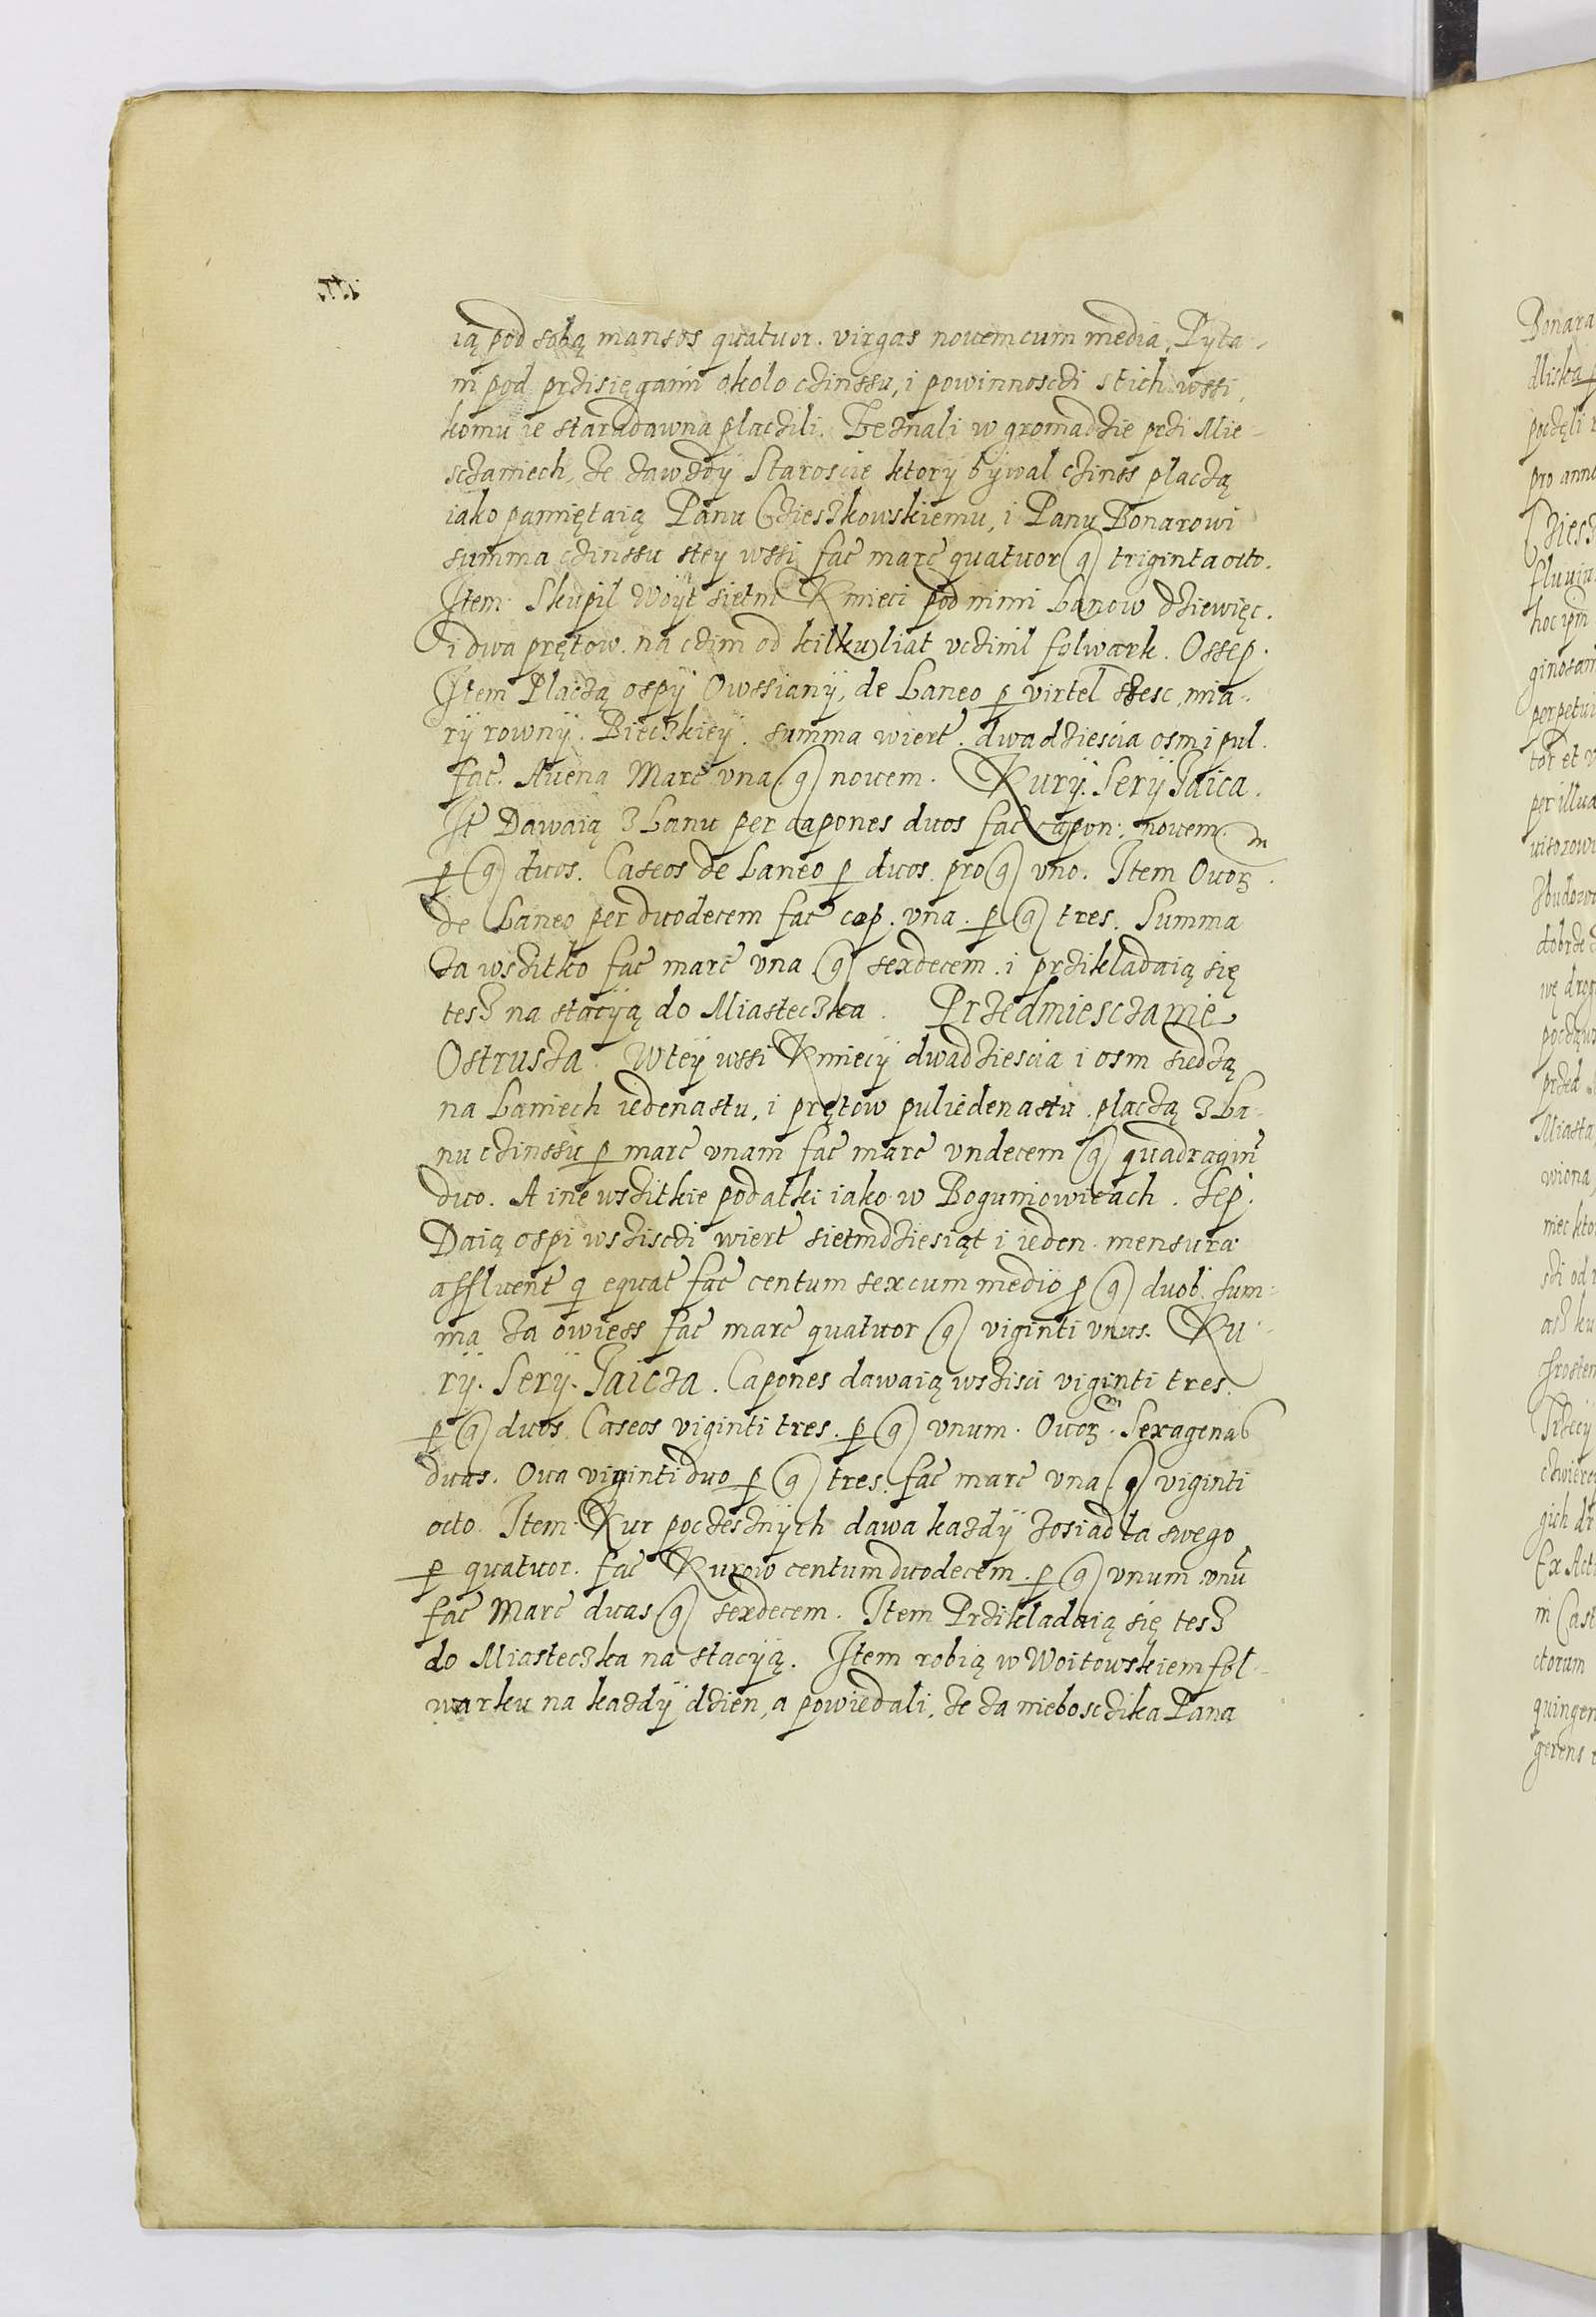 ią pod sobą mansos quatuor. virgas nouem cum media, Pyta-
ni pod przisięgami okolo czinssu, i powinnosczi stich wssi,
komu ie staradawna placzili. Zeznali w gromadzie przi Mie-
sczaniech, ze zawzdy Staroscie ktory bywal czinss placzą
iako pamiętaią Panu Czieszkowskiemu, i Panu Bonarowi
summa czinssu stey wssi fac marc quatuor g triginta octo.
Item Skupil Woyt siedm Kmieci pod nimi Lanow dziewięc.
i dwa prętow. na czim od kilku liat vczinil folwark. Ossep.
Item Placzą ospy Owssiany, de Laneo p virtel szesc, mia-
ry rowny. Bieczkiey. summa wiert. dwadziescia osm i pul.
fac. Auena Marc vna g nouem. Kury. Sery Jaica.
It Dawaią z Lanu per capones duos fac capon: nouem
p g duos. Caseos de Laneo p duos. pro g vno. Item Ouor.
de Laneo per duodecem fac cap. vna. p g tres. Summa
za wszitko fac marc vna g sexdecem. i przikladaią się
tesz na stacyą do Miasteczka. Przedmiesczanie
Ostrusza. Wtey wssi Kmiecy dwadziescia i osm siedzą
na Laniech iedenastu, i prętow puliedenastu. placzą z La-
nu czinssu p marc vnam fac marc vndecem g quadragin
duo. A ine wszitkie podatki iako w Boguniowicach. Sep.
Daią ospi wszisczi wiert siedmdziesiąt i ieden. mensura
affluent q equat fac centum sex cum medio p g duob. sum-
ma za owiess fac marc quatuor g viginti vnus. Ku-
ry. Sery. Jaicza. Capones dawaią wszisci viginti tres.
p g duos. Caseos viginti tres. p g vnum. Ouor. Sexagenas
duas. Oua viginti duo p g tres. fac marc vna g viginti
octo. Item Kur poczesznych dawa kazdy zosiadla swego
p quatuor. fac Kurow centum duodecem. p g vnum vnu
fac Marc duas g sexdecem. Item Przikladaią się tesz
do Miasteczka na stacyą. Item robią w Woitowskiem fol-
warku na kazdy dzien, a powiedali, ze za nieboszczika Pana